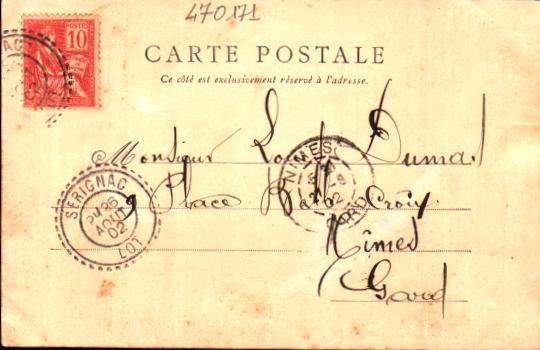 470171
POSTE
10
CARTE POSTALE
Ce côté est exclusivement réservé à l'adresse.
Monsieur Louis Dumas
9 Place Croix
Nîmes
Gard
SERIGNAC
26
AOUT
02
LOT
NIMES
02
GARD